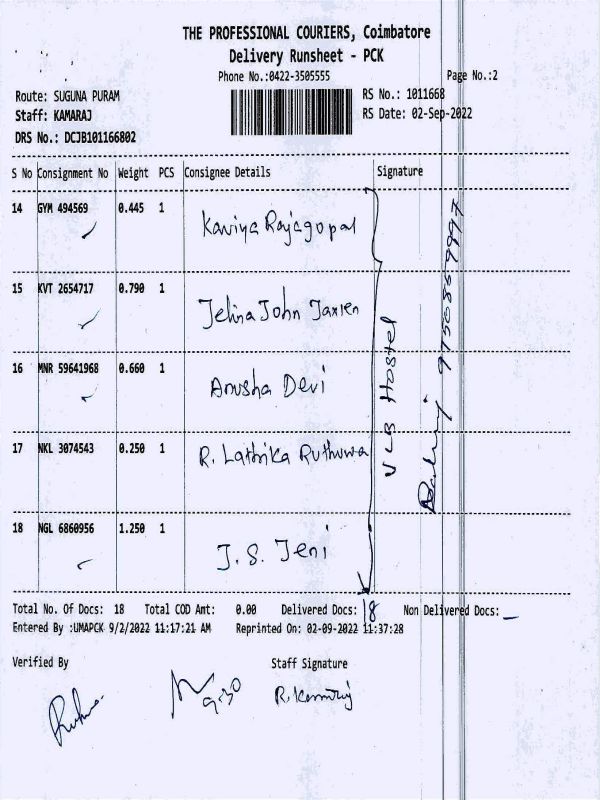 THE PROFESSIONAL COURIERS, Coimbatore
Delivery Runsheet - PCK
Phone No.:0422-3505555
Page No.:2
Route: SUGUNA PURAM
RS No.: 1011668
Staff: KAMARAJ
RS Date: 02-Sep-2022
DRS No.: DCJB101166802
S No Consignment No Weight PCS Consignee Details Signature
14 GYM 494569 0.445 1 Kaviya Rajagopal
15 KVT 2654717 0.790 1 Jelina John Jaxlen
16 MNR 59641968 0.660 1 Anusha Devi
17 NKL 3074543 0.250 1 R. Lathika Ruthuwa
18 NGL 6860956 1.250 1 J. S. Jeni
VLB Hostel
Total No. Of Docs: 18 Total COD Amt: 0.00 Delivered Docs: 18 Non Delivered Docs: _
Entered By :UMAPCK 9/2/2022 11:17:21 AM Reprinted On: 02-09-2022 11:37:28
Verified By
Staff Signature
9.30